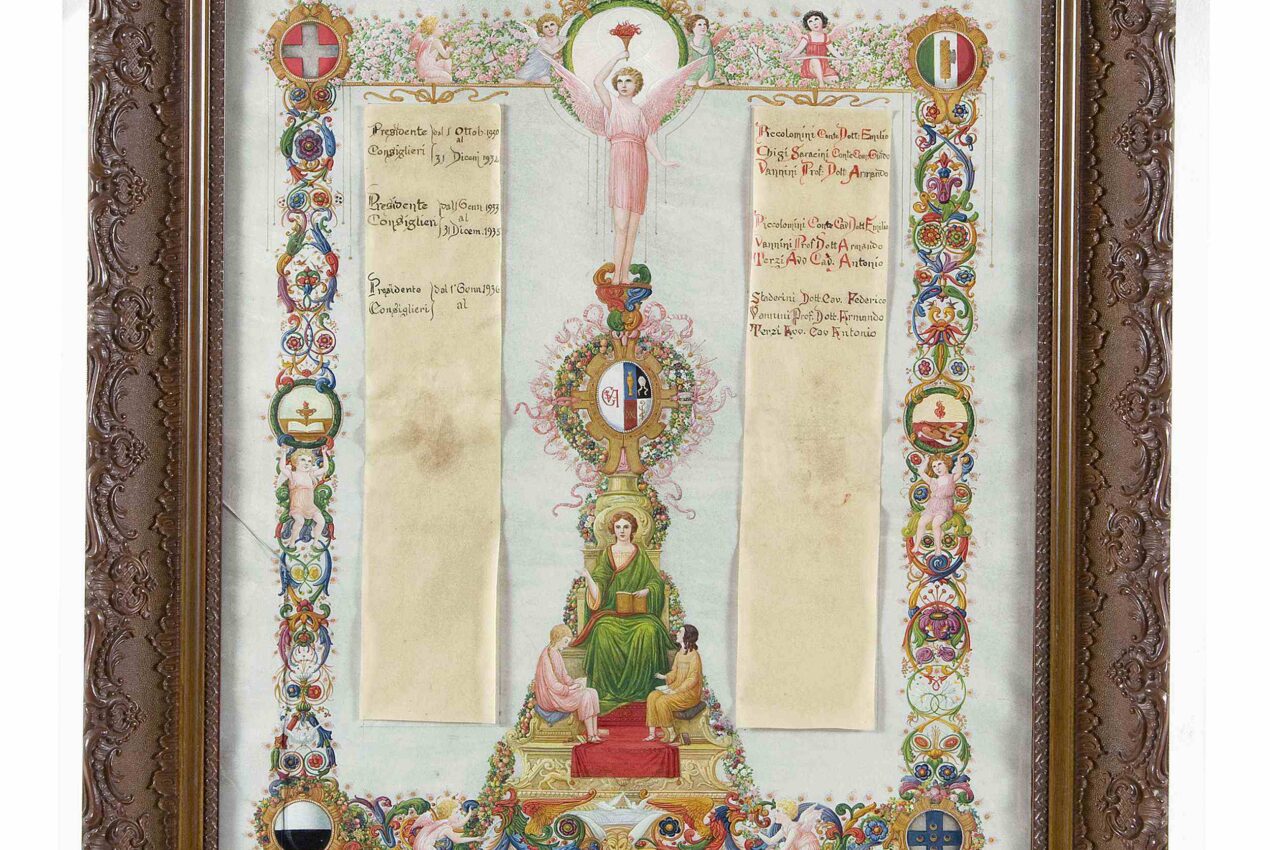 Presidente dal 1 Ottob. 1930
al
Consiglieri 31 Dicem. 1932
Presidente dal 1 Genn. 1933
Consiglieri al
31 Dicem. 1935
Presidente dal 1° Genn 1936
Consiglieri al
Piccolomini Conte Dott. Emilio
Chigi Saracini Conte Com. Guido
Vannini Prof. Dott. Armando
Piccolomini Conte Cav Dott Emilio
Vannini Prof Dott Armando
Terzi Avv Cav. Antonio
Staderini Dott. Cav. Federico
Vannini Prof. Dott. Armando
Terzi Avv. Cav Antonio